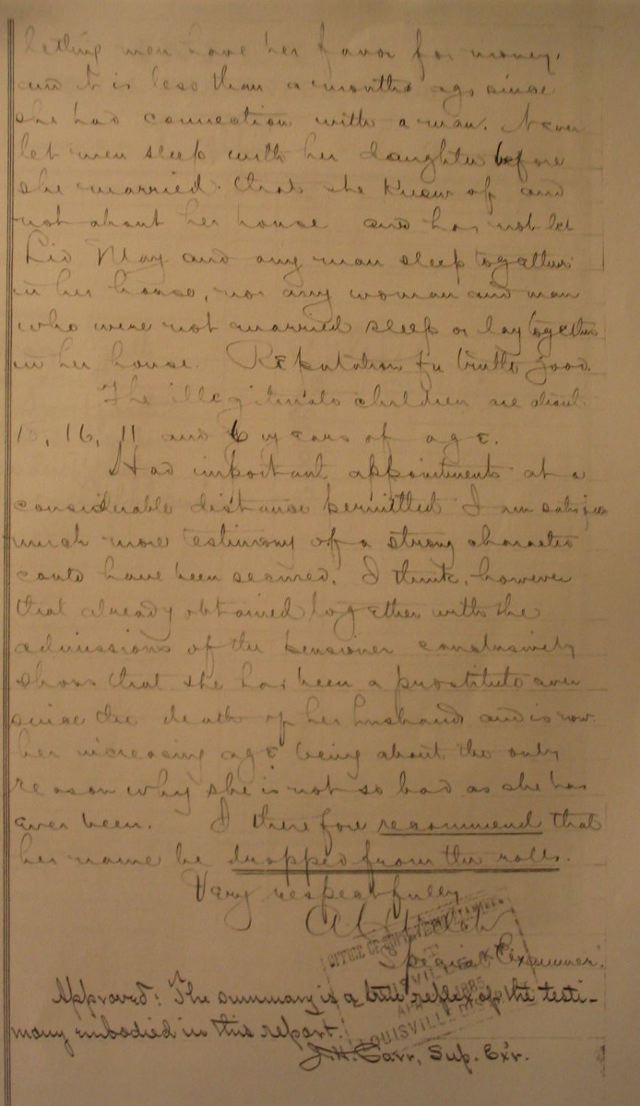 letting men have her favor for money,
and it is less than a months ago since
she had connection with a man. Never
let men sleep with her daughter before
she married that she knew of and
not about her house and has not let
Lid May and any man sleep together
in her house, nor any woman and man
who were not married sleep or lay together
in her house. Reputation for truth good.
The illegitimate children are about
16, 11 and 6 years of age.
Had important appointments at a
considerable distance permitted I am satisfied
much more testimony of a strong character
could have been secured. I think, however
that already obtained together with the
admissions of the pensioner conclusively
shows that she has been a prostitute ever
since the death of her husband and is now.
her increasing age being about the only
reason why she is not so bad as she has
ever been. I therefore recommend that
her name be dropped from the rolls.
Very respectfully
Special Examiner.
OFFICE OF SUPERVISING
LOUISVILLE
Approved: The summary is a true reflex of the testi-
mony embodied in this report.
J.H. Carr, Sup. Exr.